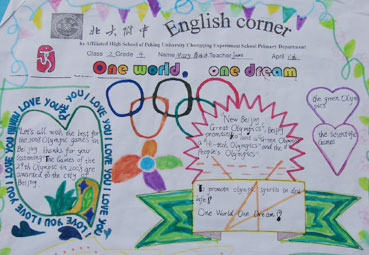 English corner
北大附中
In Affiliated High School of Peking University Chongqing Experiment School Primary Department
Class 2 Grade 4 Name Mary Teacher Jane April
One world, one dream
I LOVE YOU I LOVE YOU I LOVE YOU I LOVE YOU
Let's all wish the best for
the 2008 Olympic games in
Beijing Thanks for your
listening The Games of the
29th Olympic in 2008 are
awarded to the city of
Beijing
New Beijing
Great Olympics", Beijing
promises to hold a "Green Olympics"
a "Hi-tech Olympics" and the "
People's Olympics"
the great Olym
pics
the Scientific
Games
To promote olympic sports in dai
ly life
One World One Dream!